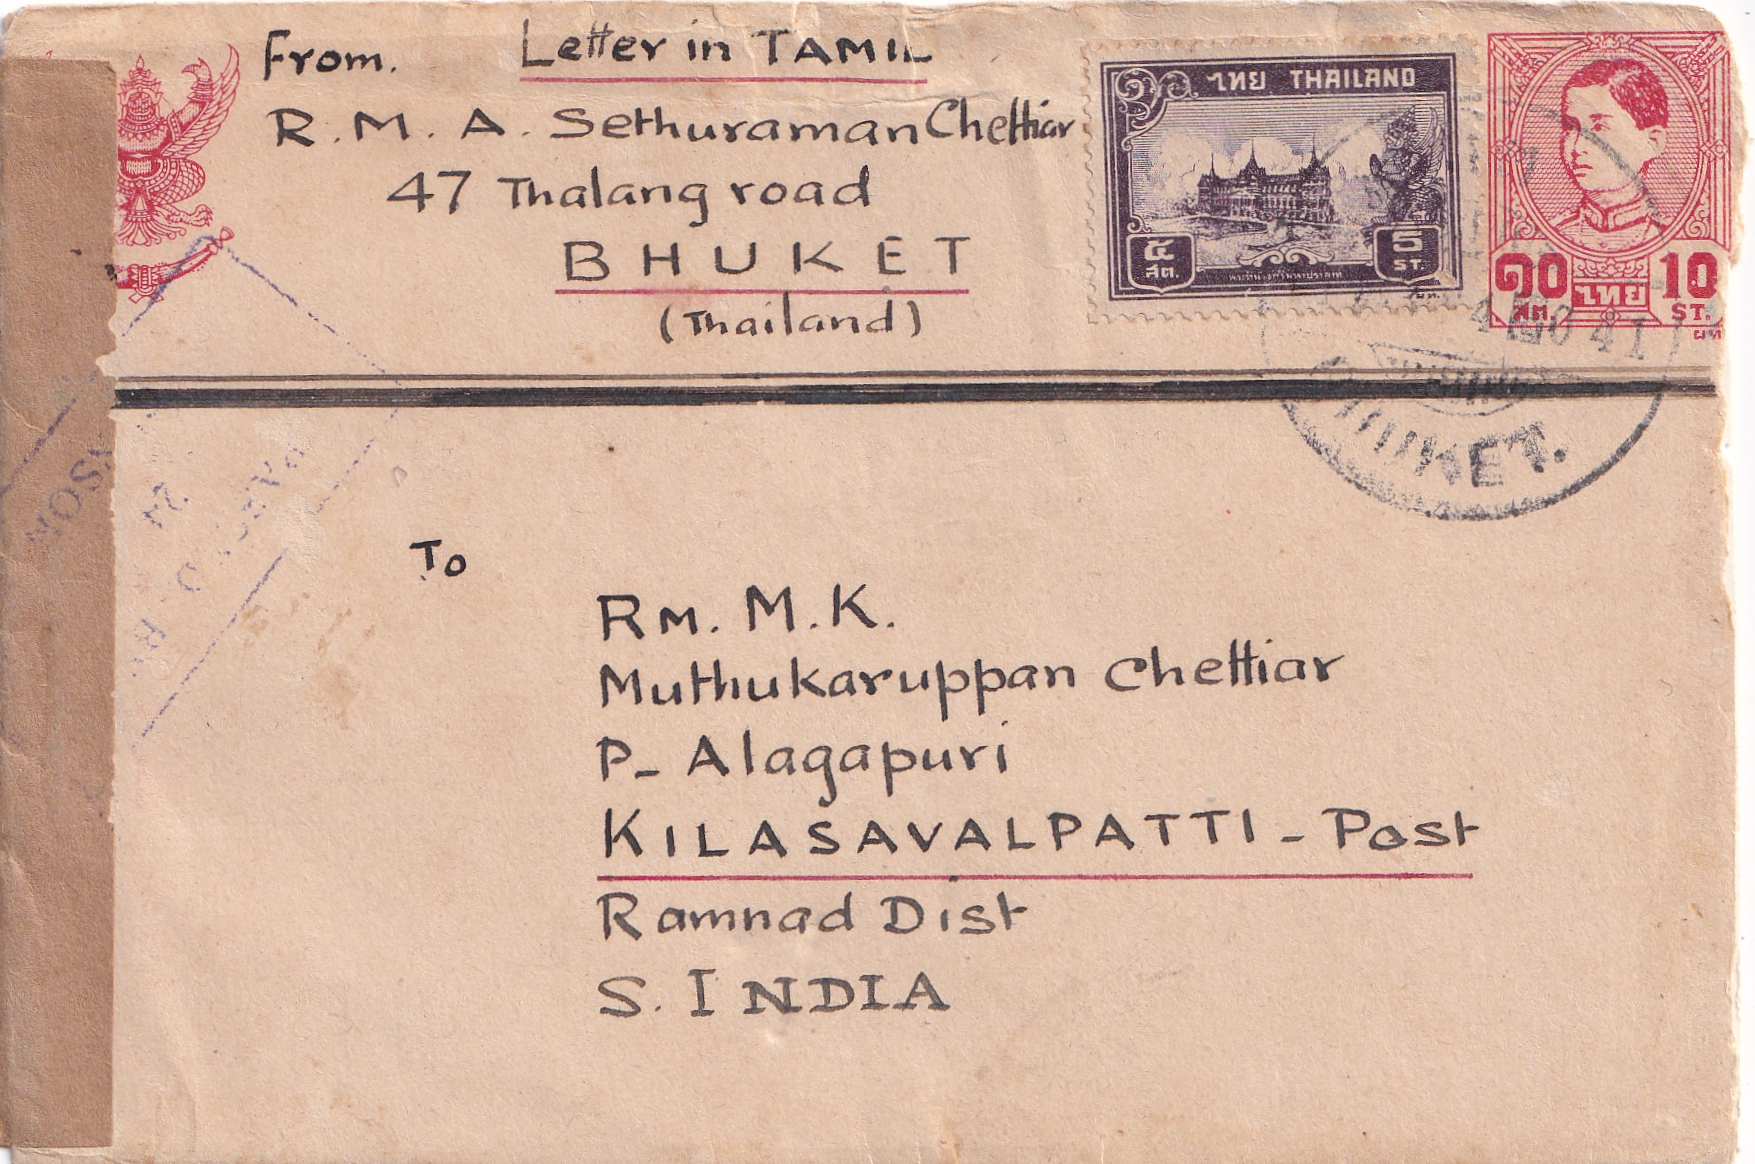 From. Letter in TAMIL
R. M. A. Sethuraman Chettiar
47 Thalang road
BHUKET
(Thailand)
ไทย THAILAND
๕ สต.
5 ST.
๑๐ สต.
ไทย
10 ST.
41
PASSED BY
To
Rm. M. K.
Muthukaruppan Chettiar
P- Alagapuri
KILASAVALPATTI - Post
Ramnad Dist
S. INDIA